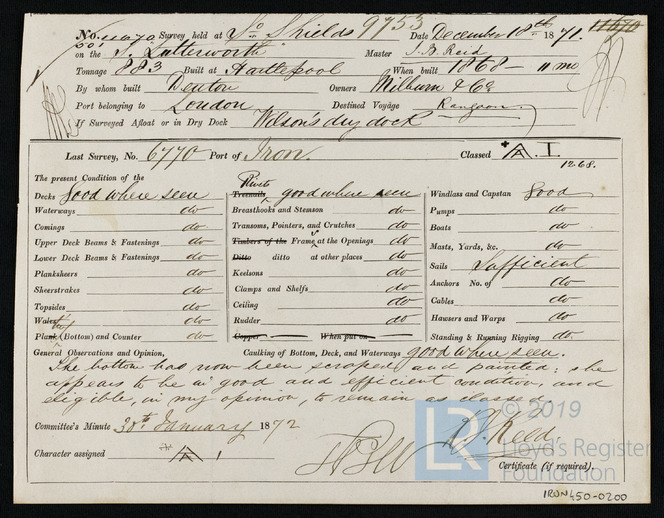 No. 11070 Survey held at So. Shields 9753 Date December 18th 1871. 11070
on the S. Lutterworth Master J. B. Reid
Tonnage 883 Built at Hartlepool When built 1868 – 11 mo
By whom built Denton Owners Milburn & Co
Port belonging to London Destined Voyage Rangoon
If Surveyed Afloat or in Dry Dock Wilson's dry dock
Last Survey, No. 6770 Port of Iron. Classed A.1
12.68.
The present Condition of the
Decks good where seen Treenails Rivets good where seen Windlass and Capstan Good
Waterways do Breasthooks and Stemson do Pumps do
Comings do Transoms, Pointers, and Crutches do Boats do
Upper Deck Beams & Fastenings do Timbers of the Frame at the Openings do Masts, Yards, &c. do
Lower Deck Beams & Fastenings do Ditto ditto at other places do Sails Sufficient
Planksheers do Keelsons do Anchors No. of do
Sheerstrakes do Clamps and Shelfs do Cables do
Topsides do Ceiling do Hawsers and Warps do
Wales do Rudder do Standing & Running Rigging do
Plank (Bottom) and Counter do Copper When put on
General Observations and Opinion, Caulking of Bottom, Deck, and Waterways good where seen.
The bottom has now been scraped and painted; she
appears to be in good and efficient condition, and
eligible, in my opinion, to remain as classed.
Committee's Minute 30th January 1872
Character assigned A 1
Certificate (if required).
© 2019
LR Lloyd's Register
Foundation
IRON 450-0200